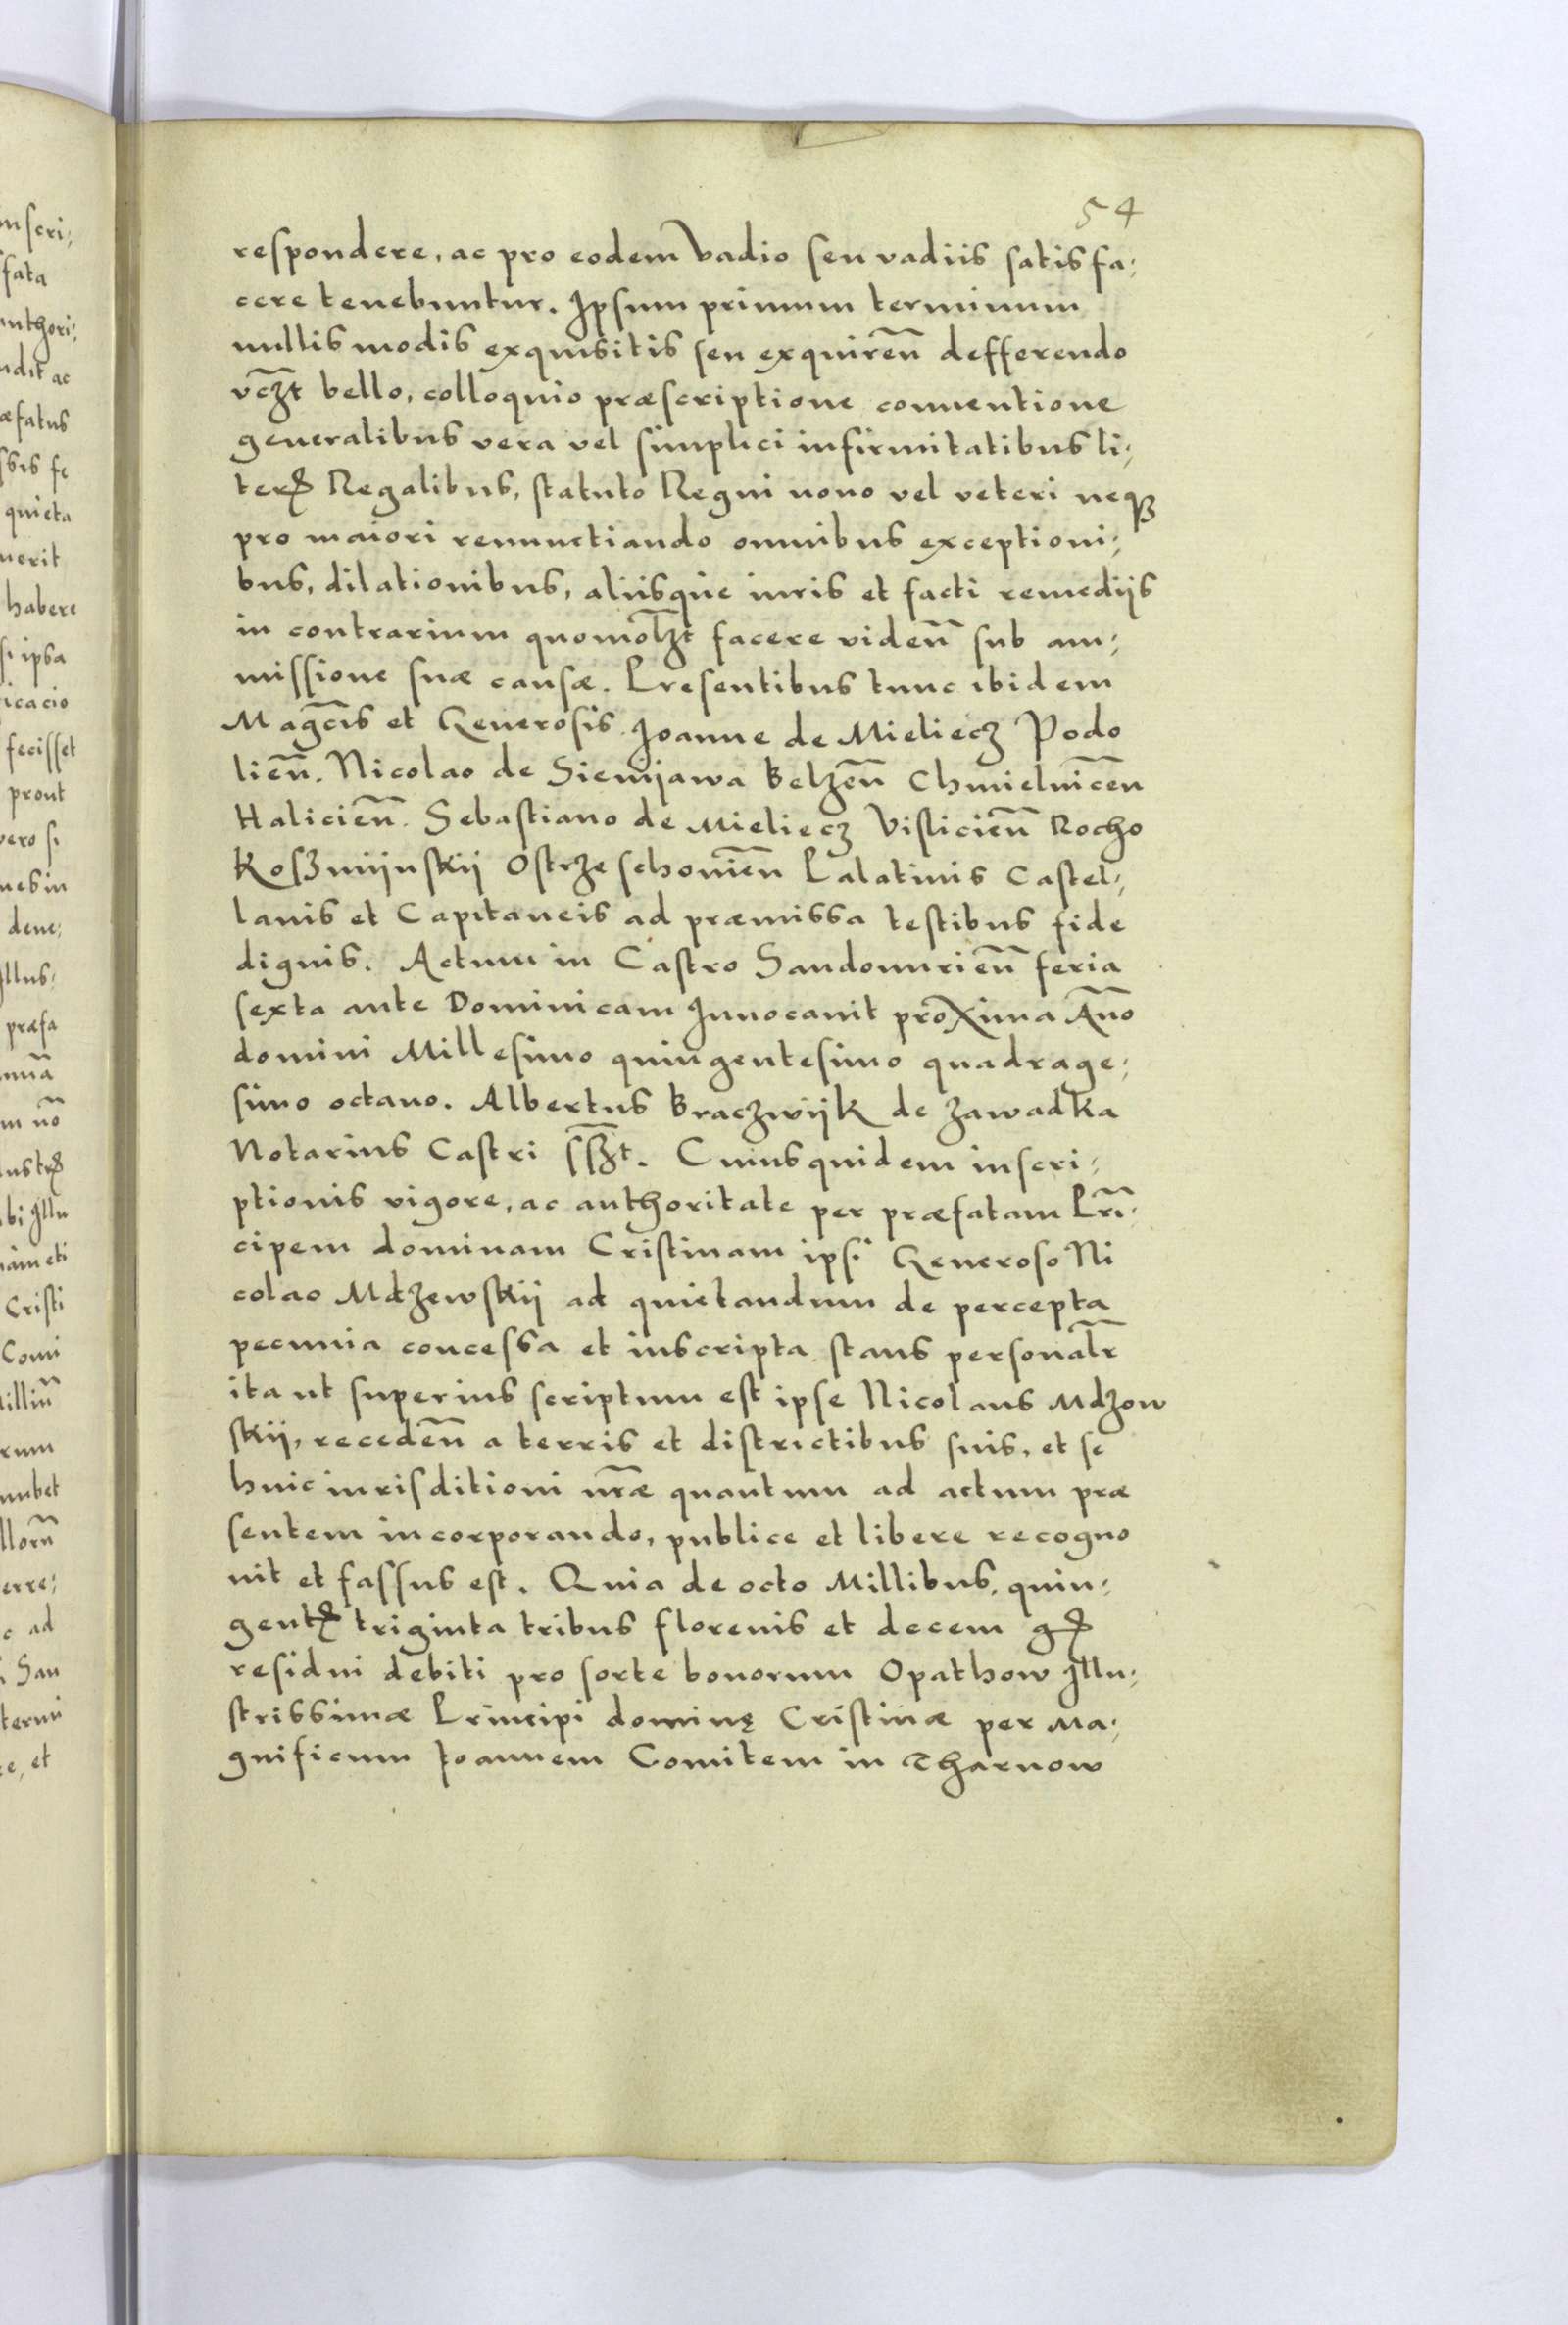 54
respondere, ac pro eodem Vadio seu vadiis satisfa;
cere tenebuntur. Ipsum primum terminum
nullis modis exquisitis seu exquireñ defferendo
vcȝt bello, colloquio præscriptione conuentione
generalibus vera vel simplici infirmitatibus li;
terꝭ Regalibus, statuto Regni nouo vel veteri neqꝫ
pro maiori renunctiando omnibus exceptioni;
bus, dilationibus, aliisque iuris et facti remediis
in contrarium quomolȝt facere videñ sub am;
missione suæ causæ. Presentibus tunc ibidem
Magcis et Generosis Joanne de Mieliecz Podo
lieñ. Nicolao de Sienijawa Belzeñ Chmielniceñ
Halicieñ. Sebastiano de Mieliecz Visliciẽn Rocho
Koszmijnskij Ostrzeschouieñ Palatinis Castel;
lanis et Capitaneis ad præmissa testibus fide
dignis. Actum in Castro Sandomirieñ feria
sexta ante Dominicam Inuocauit proxima Año
domini Millesimo quingentesimo quadrage;
simo octauo. Albertus Braczwijk de Zawadka
Notarius Castri ssȝt. Cuius quidem inscri;
ptionis vigore, ac authoritate per præfatam Prĩ;
cipem dominam Cristinam ipsi Generoso Ni
colao Mdzewskij ad quietandum de percepta
pecunia concessa et inscripta stans personalr̃
ita ut superius scriptum est ipse Nicolaus Mdzow
skij, recedeñ a terris et districtibus suis, et se
huic iurisditioni nr̃æ quantum ad actum præ
sentem incorporando, publice et libere recogno
uit et fassus est. Quia de octo Millibus, quin;
gentꝭ triginta tribus florenis et decem gꝭ
residui debiti pro sorte bonorum Opathow Illu;
strissimæ Principi dominę Cristinæ per Ma;
gnificum Joannem Comitem in Tharnow